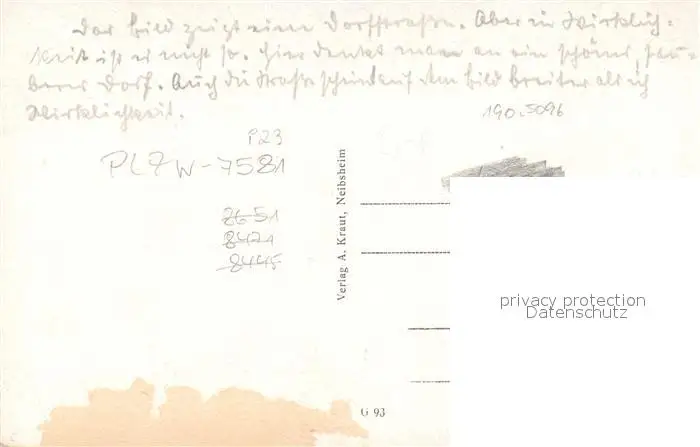 Das Bild zeigt eine Dorfstraße. Aber in Wirklich-
keit ist es nicht so. Hier denkt man an ein schönes, sau-
beres Dorf. Auch die Straße scheint auf dem Bild breiter als in
Wirklichkeit.
190.5096
P23
PLZW-7581
8651
8421
8445
Verlag A. Kraut, Neibsheim
privacy protection
Datenschutz
G 93